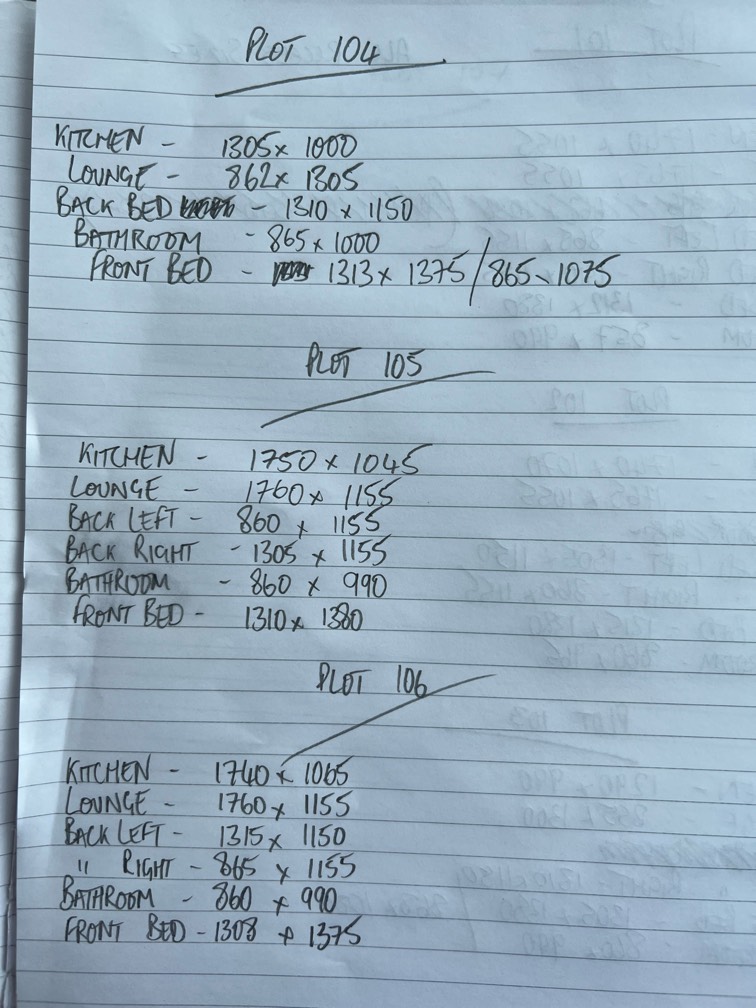 PLOT 104
KITCHEN - 1305 x 1000
LOUNGE - 862 x 1305
BACK BED - 1310 x 1150
BATHROOM - 865 x 1000
FRONT BED - 1313 x 1375 / 865 x 1075
PLOT 105
KITCHEN - 1750 x 1045
LOUNGE - 1760 x 1155
BACK LEFT - 860 x 1155
BACK RIGHT - 1305 x 1155
BATHROOM - 860 x 990
FRONT BED - 1310 x 1380
PLOT 106
KITCHEN - 1740 x 1065
LOUNGE - 1760 x 1155
BACK LEFT - 1315 x 1150
" RIGHT - 865 x 1155
BATHROOM - 860 x 990
FRONT BED - 1308 x 1375